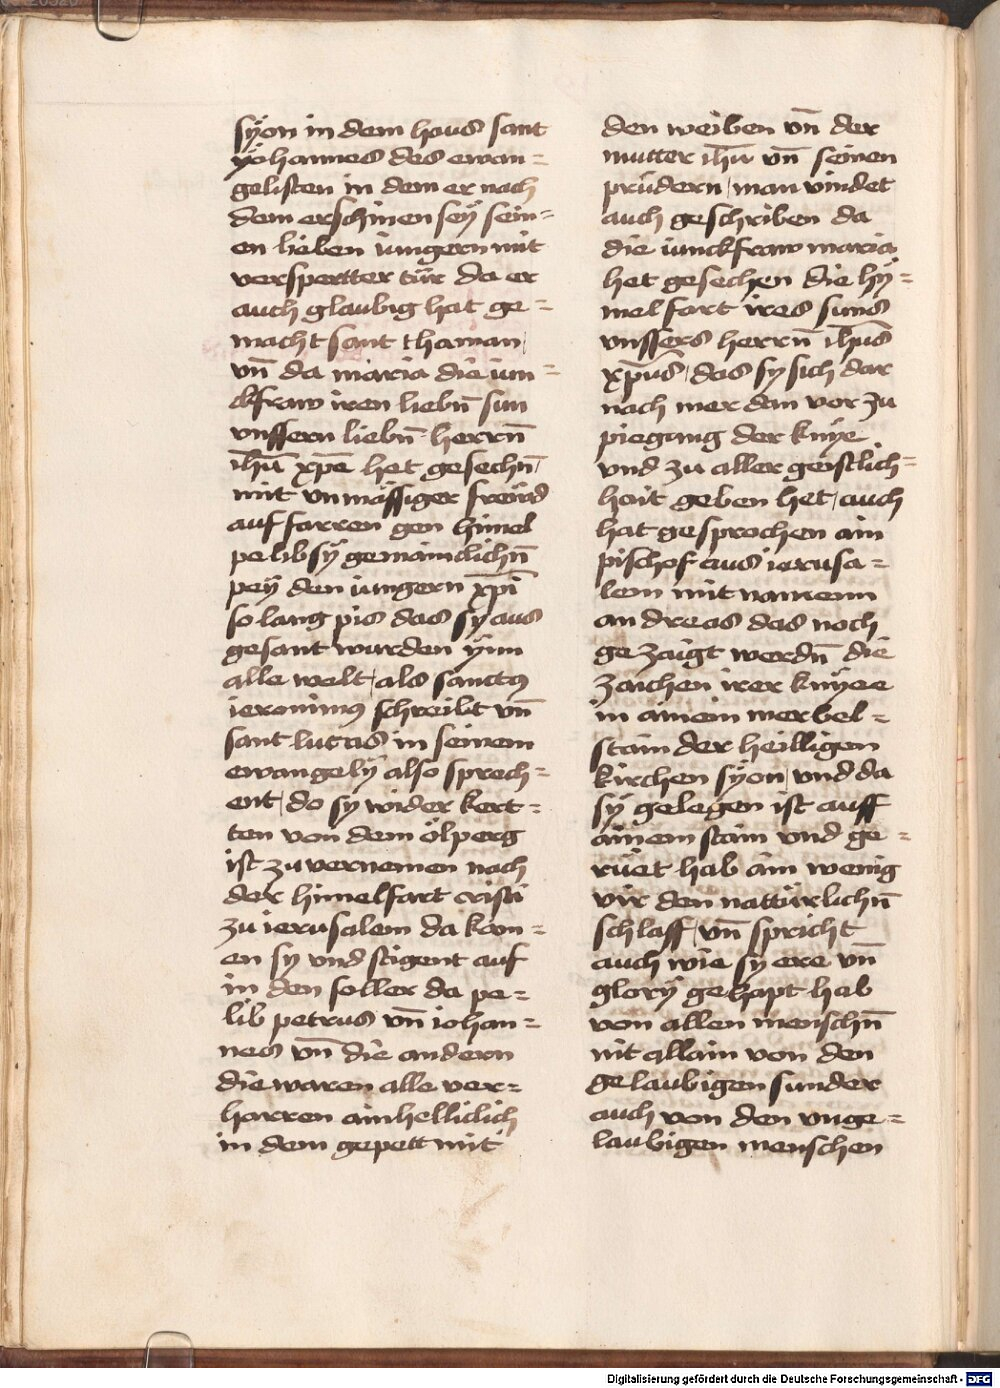 syön in dem haus sant
yohannes des ewan=
gelisten in dem er nach
dem erschinen sey sein=
en lieben iungern mit
verspertter tür da er
auch glaubig hat ge=
macht sant thaman,
vn̄ da maria die iun=
ckfraw iren liebn̄ sun
vnssern liebn̄ herrn̄
ih̄u xp̄e het gesechn̄,
mit vnmässiger freüd
auf farren gen himel
pelib sÿ gemainclichn̄
peÿ den iungern xp̄i
so lang pis das sy aus
gesant wurden ÿnn
alle welt, als sanctus
ieronimus schreibt vn̄
sant lucas in seinem
ewangelÿ also sprech=
ent, do sy wider kert=
ten von dem ölperg
ist zu vernemen nach
der himelfart cristi
zu ierusalem da kom=
en sy vnd stigent auf
in den soller da pe=
lib petrus vn̄ iohan=
nes vn̄ die andern
die waren alle ver=
harren ainhelliclich
in dem gepett mit
den weiben vn̄ der
mutter ih̄u vn̄ seinen
prüdern, man vindet
auch geschriben da
die iunckfraw maria
het gesechen die hÿ=
mel fart ires suns
vnssers herrn̄ ih̄us
xp̄us, das sy sich dar
nach mer dan vor zu
piegung der knÿe
vnd zu aller geistlich=
hait geben het, auch
hat gesprochen ain
pischof aus ierusa=
lem mit namenn
andreas das noch
gezaigt werdn̄ die
zaichen irer knÿee
in ainein merbel=
stain der heilligen
kirchen sÿon, vnd da
sÿ gelegen ist auff
ainem stain vnd ge=
rüet hab ain wenig
vir den nattürlichn̄
schlaff, vn̄ spricht
auch wie sy ere vn̄
glory gehapt hab
von allen menschn̄
nit allain von den
gelaubigen sunder
auch von den vnge=
laubigen menschen
Digitalisierung gefördert durch die Deutsche Forschungsgemeinschaft - DFG